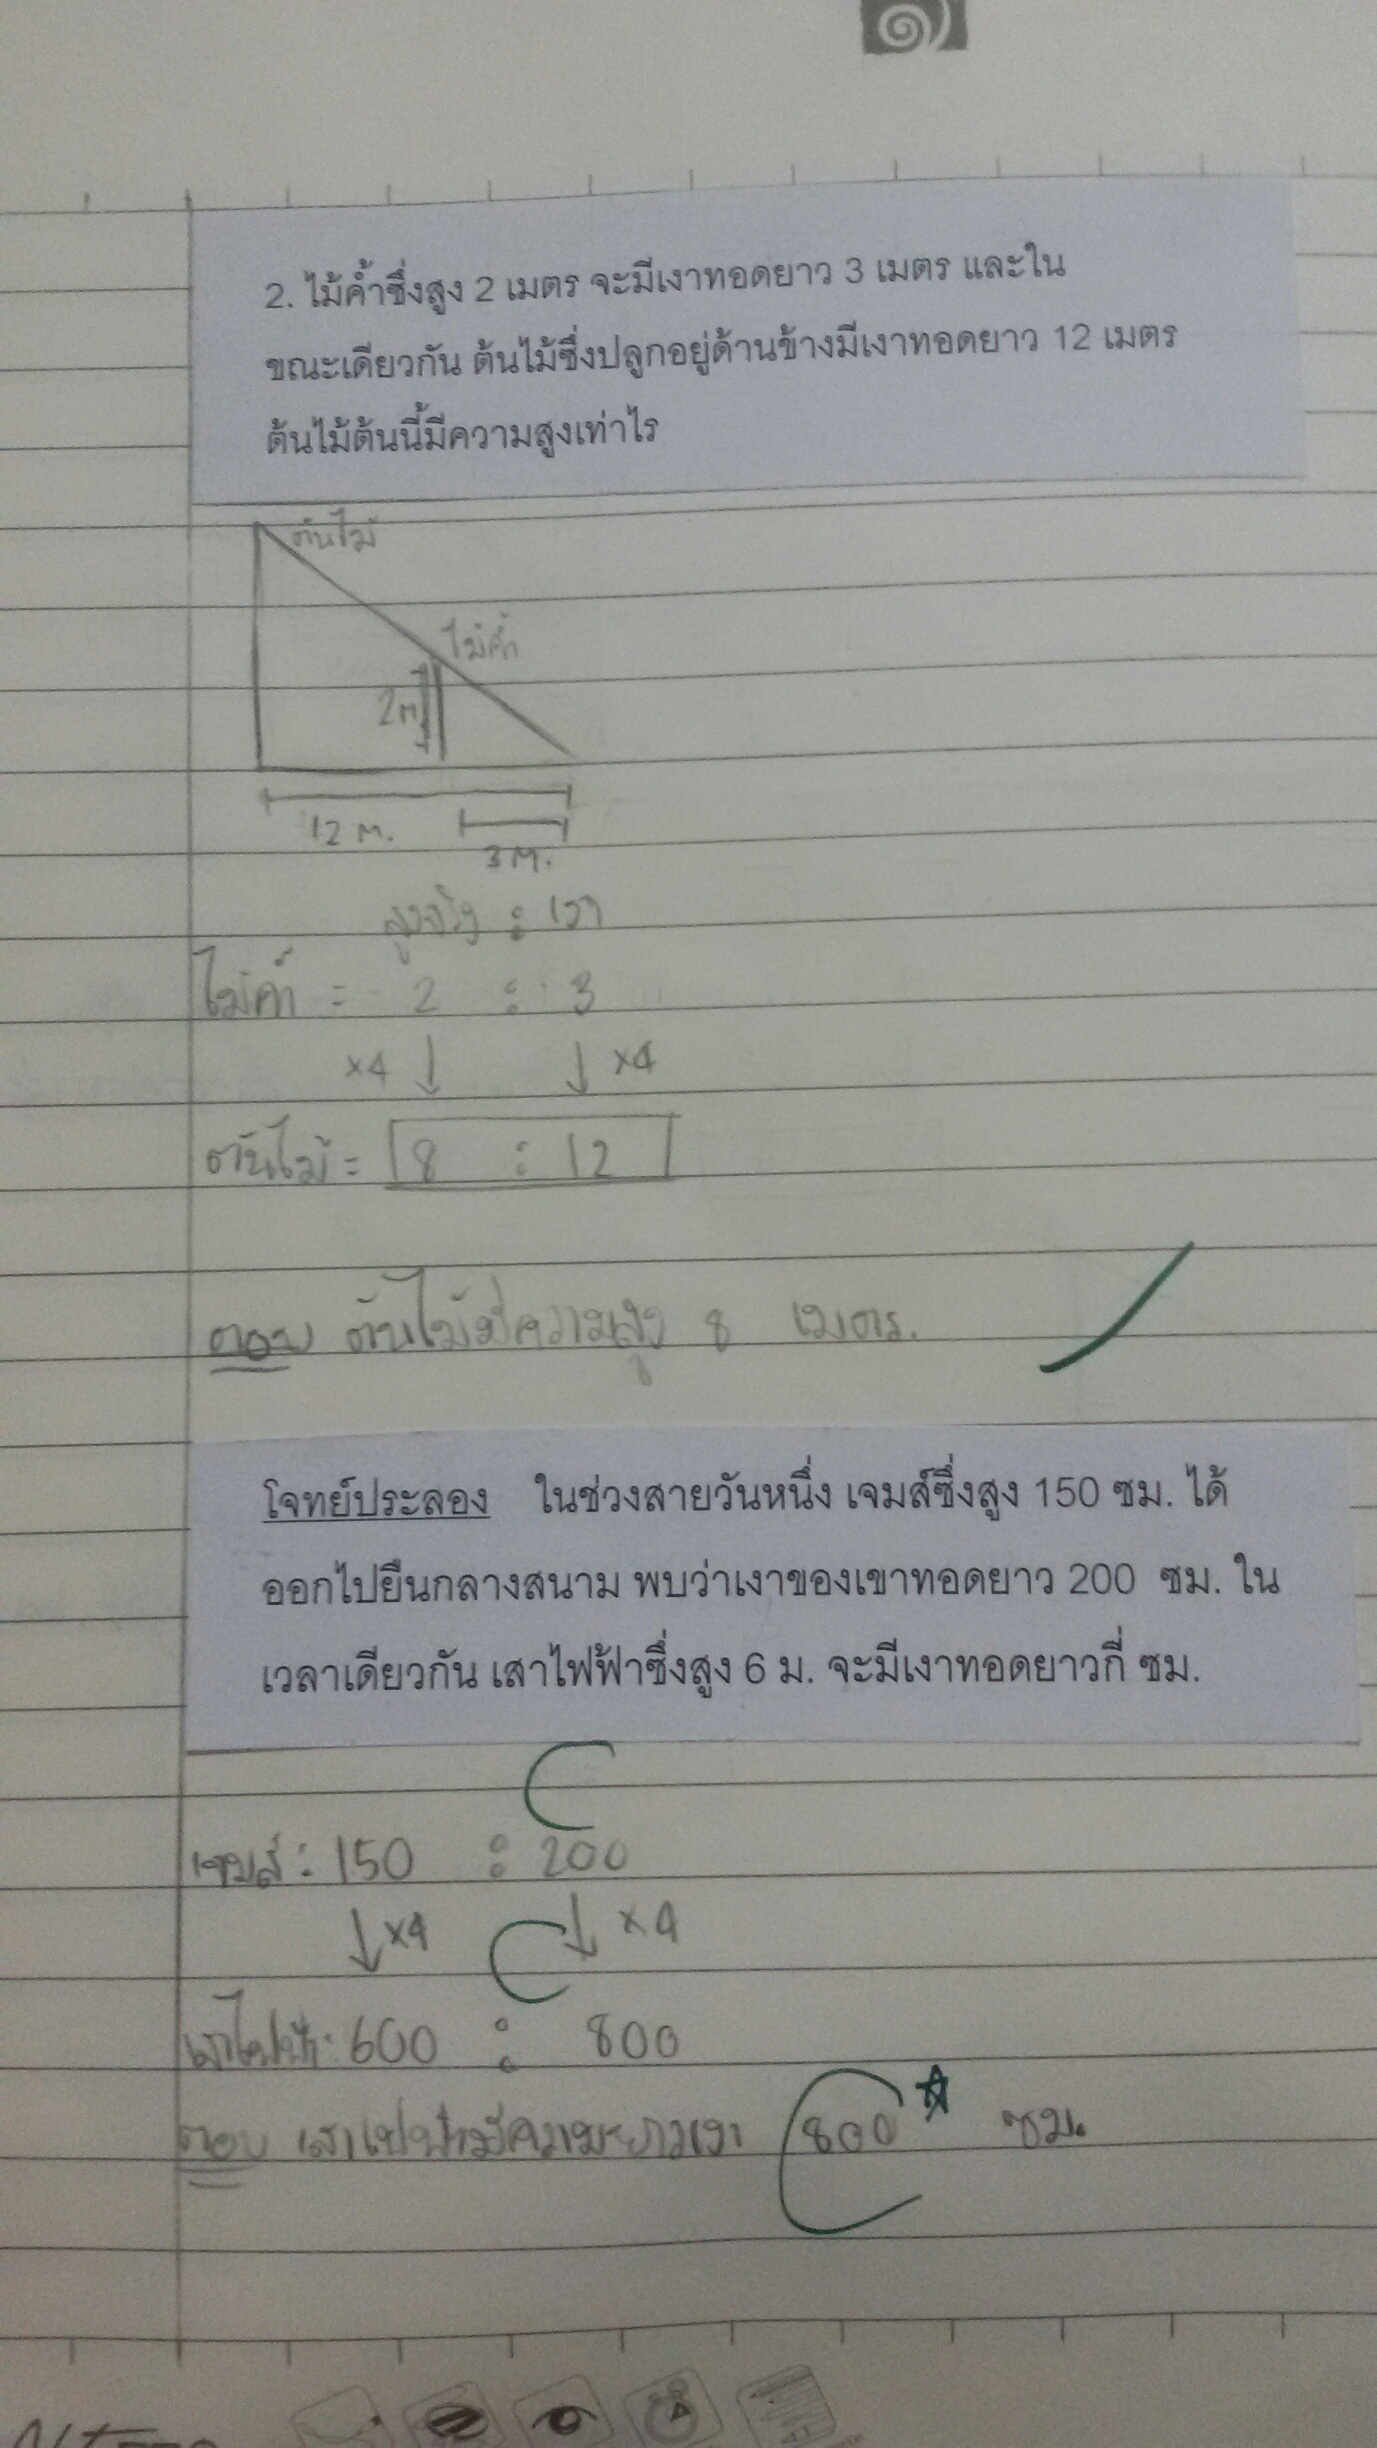 2. ไม้ค้ำซึ่งสูง 2 เมตร จะมีเงาทอดยาว 3 เมตร และใน
ขณะเดียวกัน ต้นไม้ซึ่งปลูกอยู่ด้านข้างมีเงาทอดยาว 12 เมตร
ต้นไม้ต้นนี้มีความสูงเท่าไร
ต้นไม้
ไม้ค้ำ
2m
12 m.
3 m.
สูงจริง : เงา
ไม้ค้ำ = 2 : 3
×4 ↓ ↓ ×4
ต้นไม้ = 8 : 12
ตอบ ต้นไม้มีความสูง 8 เมตร.
โจทย์ประลอง ในช่วงสายวันหนึ่ง เจมส์ซึ่งสูง 150 ซม. ได้
ออกไปยืนกลางสนาม พบว่าเงาของเขาทอดยาว 200 ซม. ใน
เวลาเดียวกัน เสาไฟฟ้าซึ่งสูง 6 ม. จะมีเงาทอดยาวกี่ ซม.
เจมส์ : 150 : 200
↓ ×4 ↓ ×4
เสาไฟฟ้า : 600 : 800
ตอบ เสาไฟฟ้ามีความยาวเงา 800 ซม.